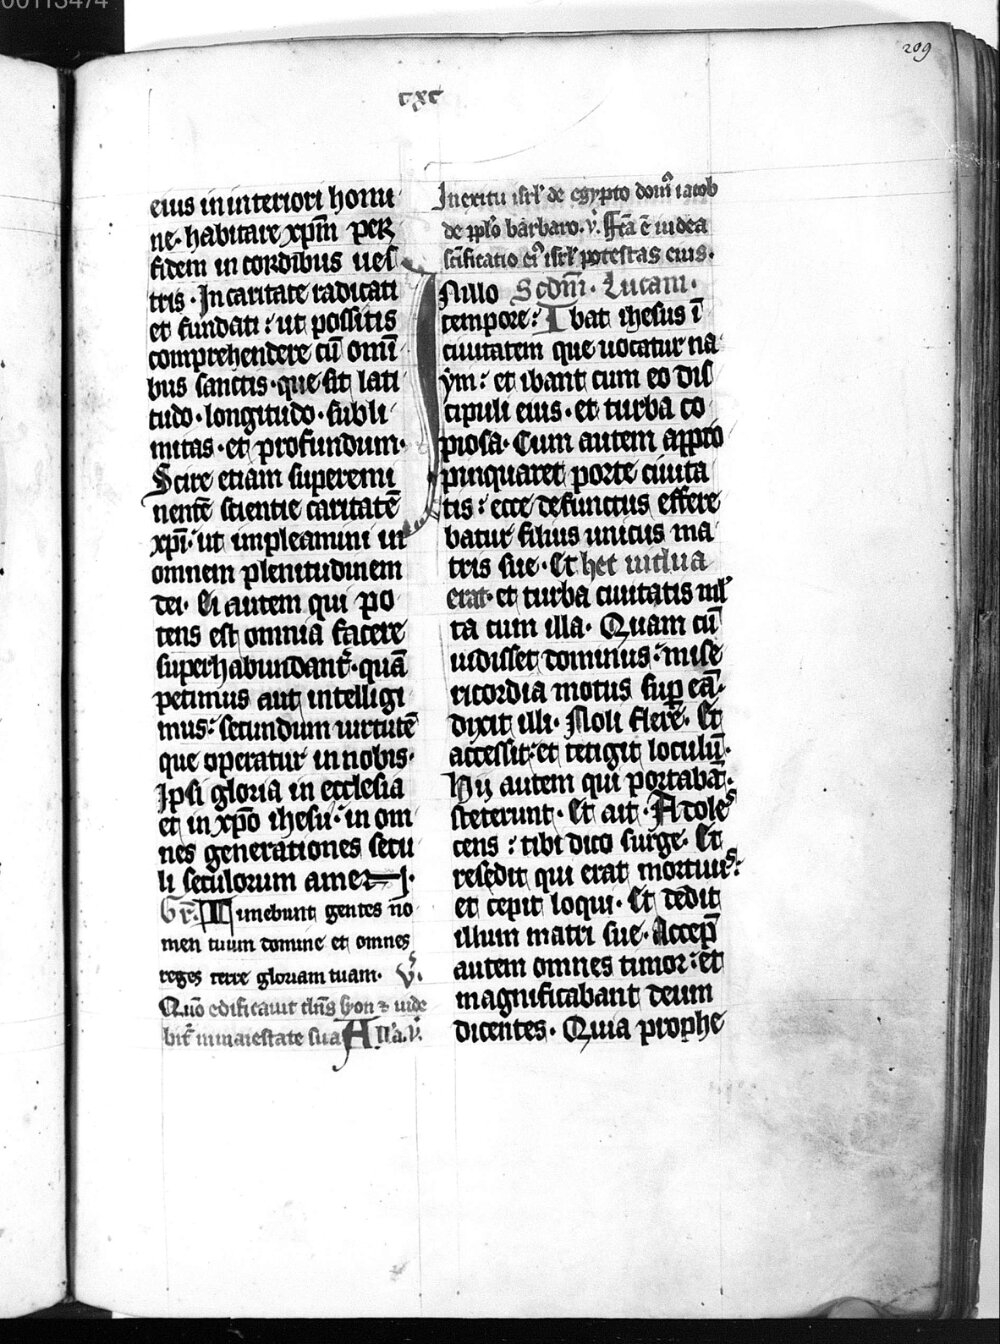 00113474
209
cxc
eius in interiori homi
ne· habitare xpm̅ per
fidem in cordibus ues
tris · In caritate radicati
et fundati : ut possitis
comprehendere cu̅ omi̅
bus sanctis· que sit lati
tudo · longitudo · subli
mitas · et profundum·
Scire etiam superemi
nente̅ scientie caritate̅
xpi̅· ut impleamini in
omnem plenitudinem
dei· Ei autem qui po
tens est omnia facere
superhabundant̉ · qua̅
petimus aut intelligi
mus : secundum uirtute̅
que operatur in nobis·
Ipsi gloria in ecclesia
et in xpo̅ ihesu· in om
nes generationes secu
li seculorum amen·
Gr̅. Timebunt gentes no
men tuum domine et omnes
reges terre gloriam tuam· V̉.
Quo̅ edificauit dn̅s syon ⁊ uide
bit̉ in maiestate sua All'a. v̉.
In exitu isrl' de egypto dom̉ iacob
de pp̅lo barbaro. v̉. Fc̅a e̅ iudea
sc̅ificatio eỉ isrl' potestas eius·
In illo Scdm̅ · Lucam·
tempore: Ibat ihesus i̅
ciuitatem que uocatur na
ym : et ibant cum eo dis
cipuli eius· et turba co
piosa· Cum autem appro
pinquaret porte ciuita
tis : ecce defunctus effere
batur filius unicus ma
tris sue· Et hec uidua
erat· et turba ciuitatis ml'
ta cum illa· Quam cu̅
uidisset dominus : mise
ricordia motus sup̅ ea̅·
dixit illi· Noli flere· Et
accessit· et tetigit loculu̅·
Hij autem qui portaba̅t·
steterunt· Et ait· Adoles
cens : tibi dico surge· Et
resedit qui erat mortuus :
et cepit loqui· Et dedit
illum matri sue· Accep̅
autem omnes timor : et
magnificabant deum
dicentes· Quia prophe